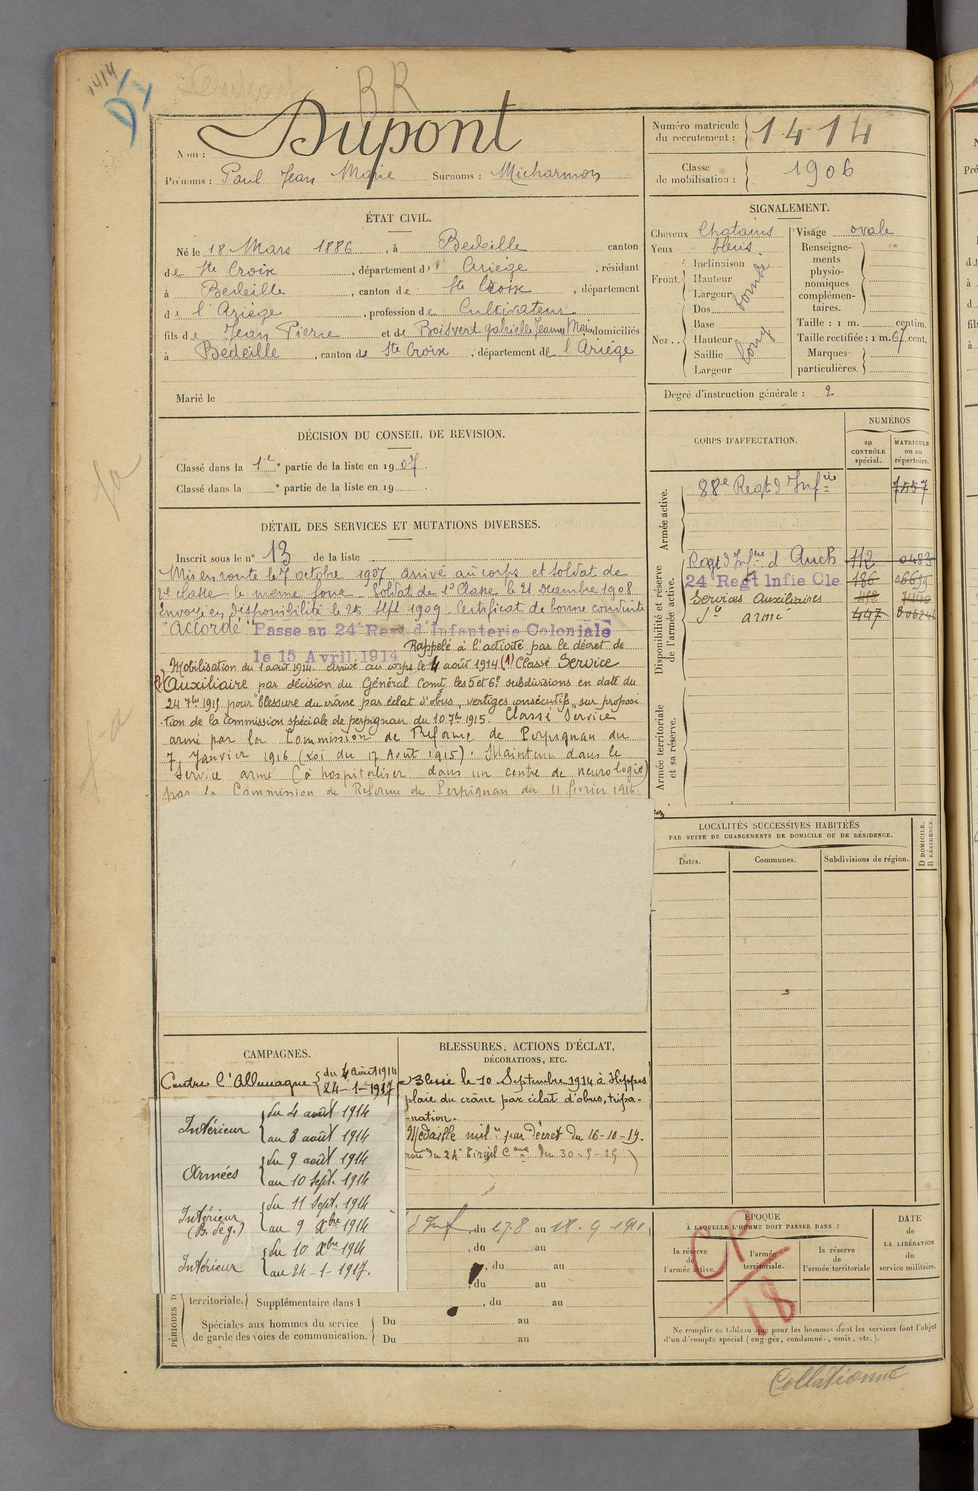 1414
RR
Nom : Dupont
Prénoms : Paul Jean Marie Surnoms : Micharmon
Numéro matricule du recrutement : 1414
Classe de mobilisation : 1906
ÉTAT CIVIL.
Né le 18 Mars 1886, à Bedeille canton
de Ste Croix, département d l'Ariège, résidant
à Bedeille, canton de Ste Croix, département
de l'Ariège, profession de Cultivateur
fils de Jean Pierre et de Boisvert Gabrielle Jeanne Marie domiciliés
à Bedeille, canton de Ste Croix, département de l'Ariège
Marié le
SIGNALEMENT.
Cheveux Chatains
Yeux bleus
Front Inclinaison
Hauteur
Largeur
Nez Dos
Base
Hauteur
Saillie
Largeur
long
Visage ovale
Renseigne-
ments
physio-
nomiques
complémen-
taires.
Taille : 1 m. centim.
Taille rectifiée : 1 m. 67 cent.
Marques
particulières.
Degré d'instruction générale : 2
DÉCISION DU CONSEIL DE REVISION.
Classé dans la 1e partie de la liste en 1907.
Classé dans la e partie de la liste en 19 .
DÉTAIL DES SERVICES ET MUTATIONS DIVERSES.
Inscrit sous le n° 13 de la liste
Mis en route le 7 octobre 1907 arrivé au corps et soldat de
2e classe le même jour. Soldat de 1e Classe le 21 Décembre 1908
Envoyé en disponibilité le 25 Sept 1909. Certificat de bonne conduite
"Accordé" Passé au 24 Regt d'Infanterie Coloniale
le 15 Avril 1914 Rappelé à l'activité par le décret de
Mobilisation du 1 août 1914. arrivé au corps le 4 août 1914 (1) Classé Service
Auxiliaire par décision du Général Comt les 5 et 6e subdivisions en date du
24 7bre 1915 pour "blessure du crâne par éclat d'obus, vertiges consécutifs", sur proposi
-tion de la Commission spéciale de perpignan du 10 7bre 1915. Classé Service
armé par la Commission de Réforme de Perpignan du
7 Janvier 1916 (Loi du 17 Août 1915). Maintenu dans le
Service armé (à hospitaliser dans un centre de neurologie)
par la Commission de Réforme de Perpignan du 11 février 1916
CORPS D'AFFECTATION.
NUMÉROS
au CONTRÔLE spécial.
MATRICULE ou au répertoire.
Armée active.
88e Regt d'Infie 7557
Disponibilité et réserve de l'armée active.
Regt d'Infie d'Auch 112 0483
24 Regt Infie Cle 186
Services Auxiliaires
Sce armé 497
Armée territoriale et sa réserve.
LOCALITÉS SUCCESSIVES HABITÉES
PAR SUITE DE CHANGEMENTS DE DOMICILE OU DE RÉSIDENCE.
Dates. Communes. Subdivisions de région.
D DOMICILE. R RÉSIDENCE.
CAMPAGNES.
Contre l'Allemagne du 4 août 1914
24-1-1917
Intérieur du 4 août 1914
au 8 août 1914
Armées du 9 août 1914
au 10 Sept. 1914
Intérieur (B. de g.) du 11 Sept. 1914
au 9 Xbre 1914
Intérieur du 10 Xbre 1914
au 24-1-1917.
BLESSURES, ACTIONS D'ÉCLAT,
DÉCORATIONS, ETC.
Blessé le 10 Septembre 1914 à
plaie du crâne par éclat d'obus, trépa-
-nation.
Médaille milre par décret du 16-10-19.
d'Inf du 27.8 au 18.9 1911
, du au
, du au
, du au
territoriale. Supplémentaire dans l , du au
PÉRIODES D
Spéciales aux hommes du service
de garde des voies de communication. Du au
Du au
ÉPOQUE
À LAQUELLE L'HOMME DOIT PASSER DANS :
la réserve de l'armée active.
l'armée territoriale.
la réserve de l'armée territoriale
DATE de LA LIBÉRATION du service militaire.
CP
18
Ne remplir ce tableau que pour les hommes dont les services font l'objet
d'un d'compte spécial (engagés, condamnés, omis, etc.).
Collationné